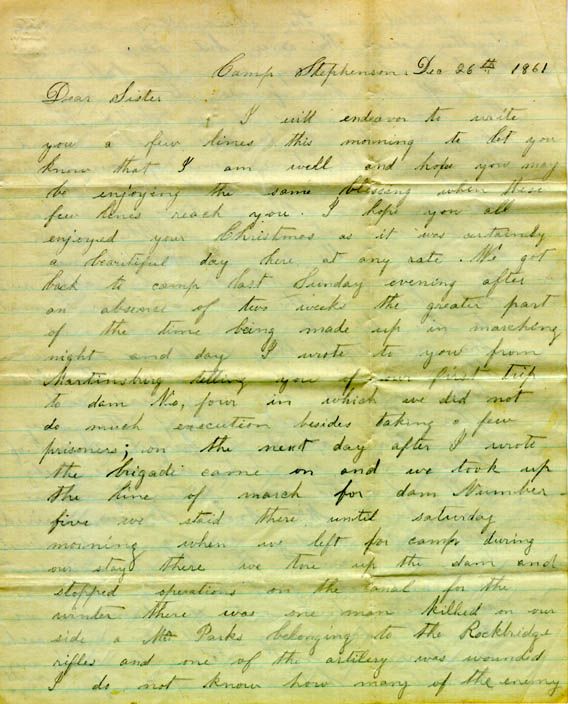 Camp Stephenson, Dec 26th 1861
Dear Sister
I will endeavor to write
you a few lines this morning to let you
know that I am well and hope you may
be enjoying the same blessing when these
few lines reach you. I hope you all
enjoyed your Christmas as it was certainly
a beautiful day here at any rate. We got
back to camp last Sunday evening after
an absence of two weeks the greater part
of the time being made up in marching
night and day I wrote to you from
Martinsburg telling you of our first trip
to dam No, four in which we did not
do much execution besides taking a few
prisoners; on the next day after I wrote
the brigade came on and we took up
the line of march for dam Number
five we staid there until saturday
morning when we left for camp during
our stay there we tore up the dam and
stopped operations on the canal for the
winter there was one man killed on our
side a Mr Parks belonging to the Rockbridge
rifles and one of the artilery was wounded
I do not know how many of the enemy